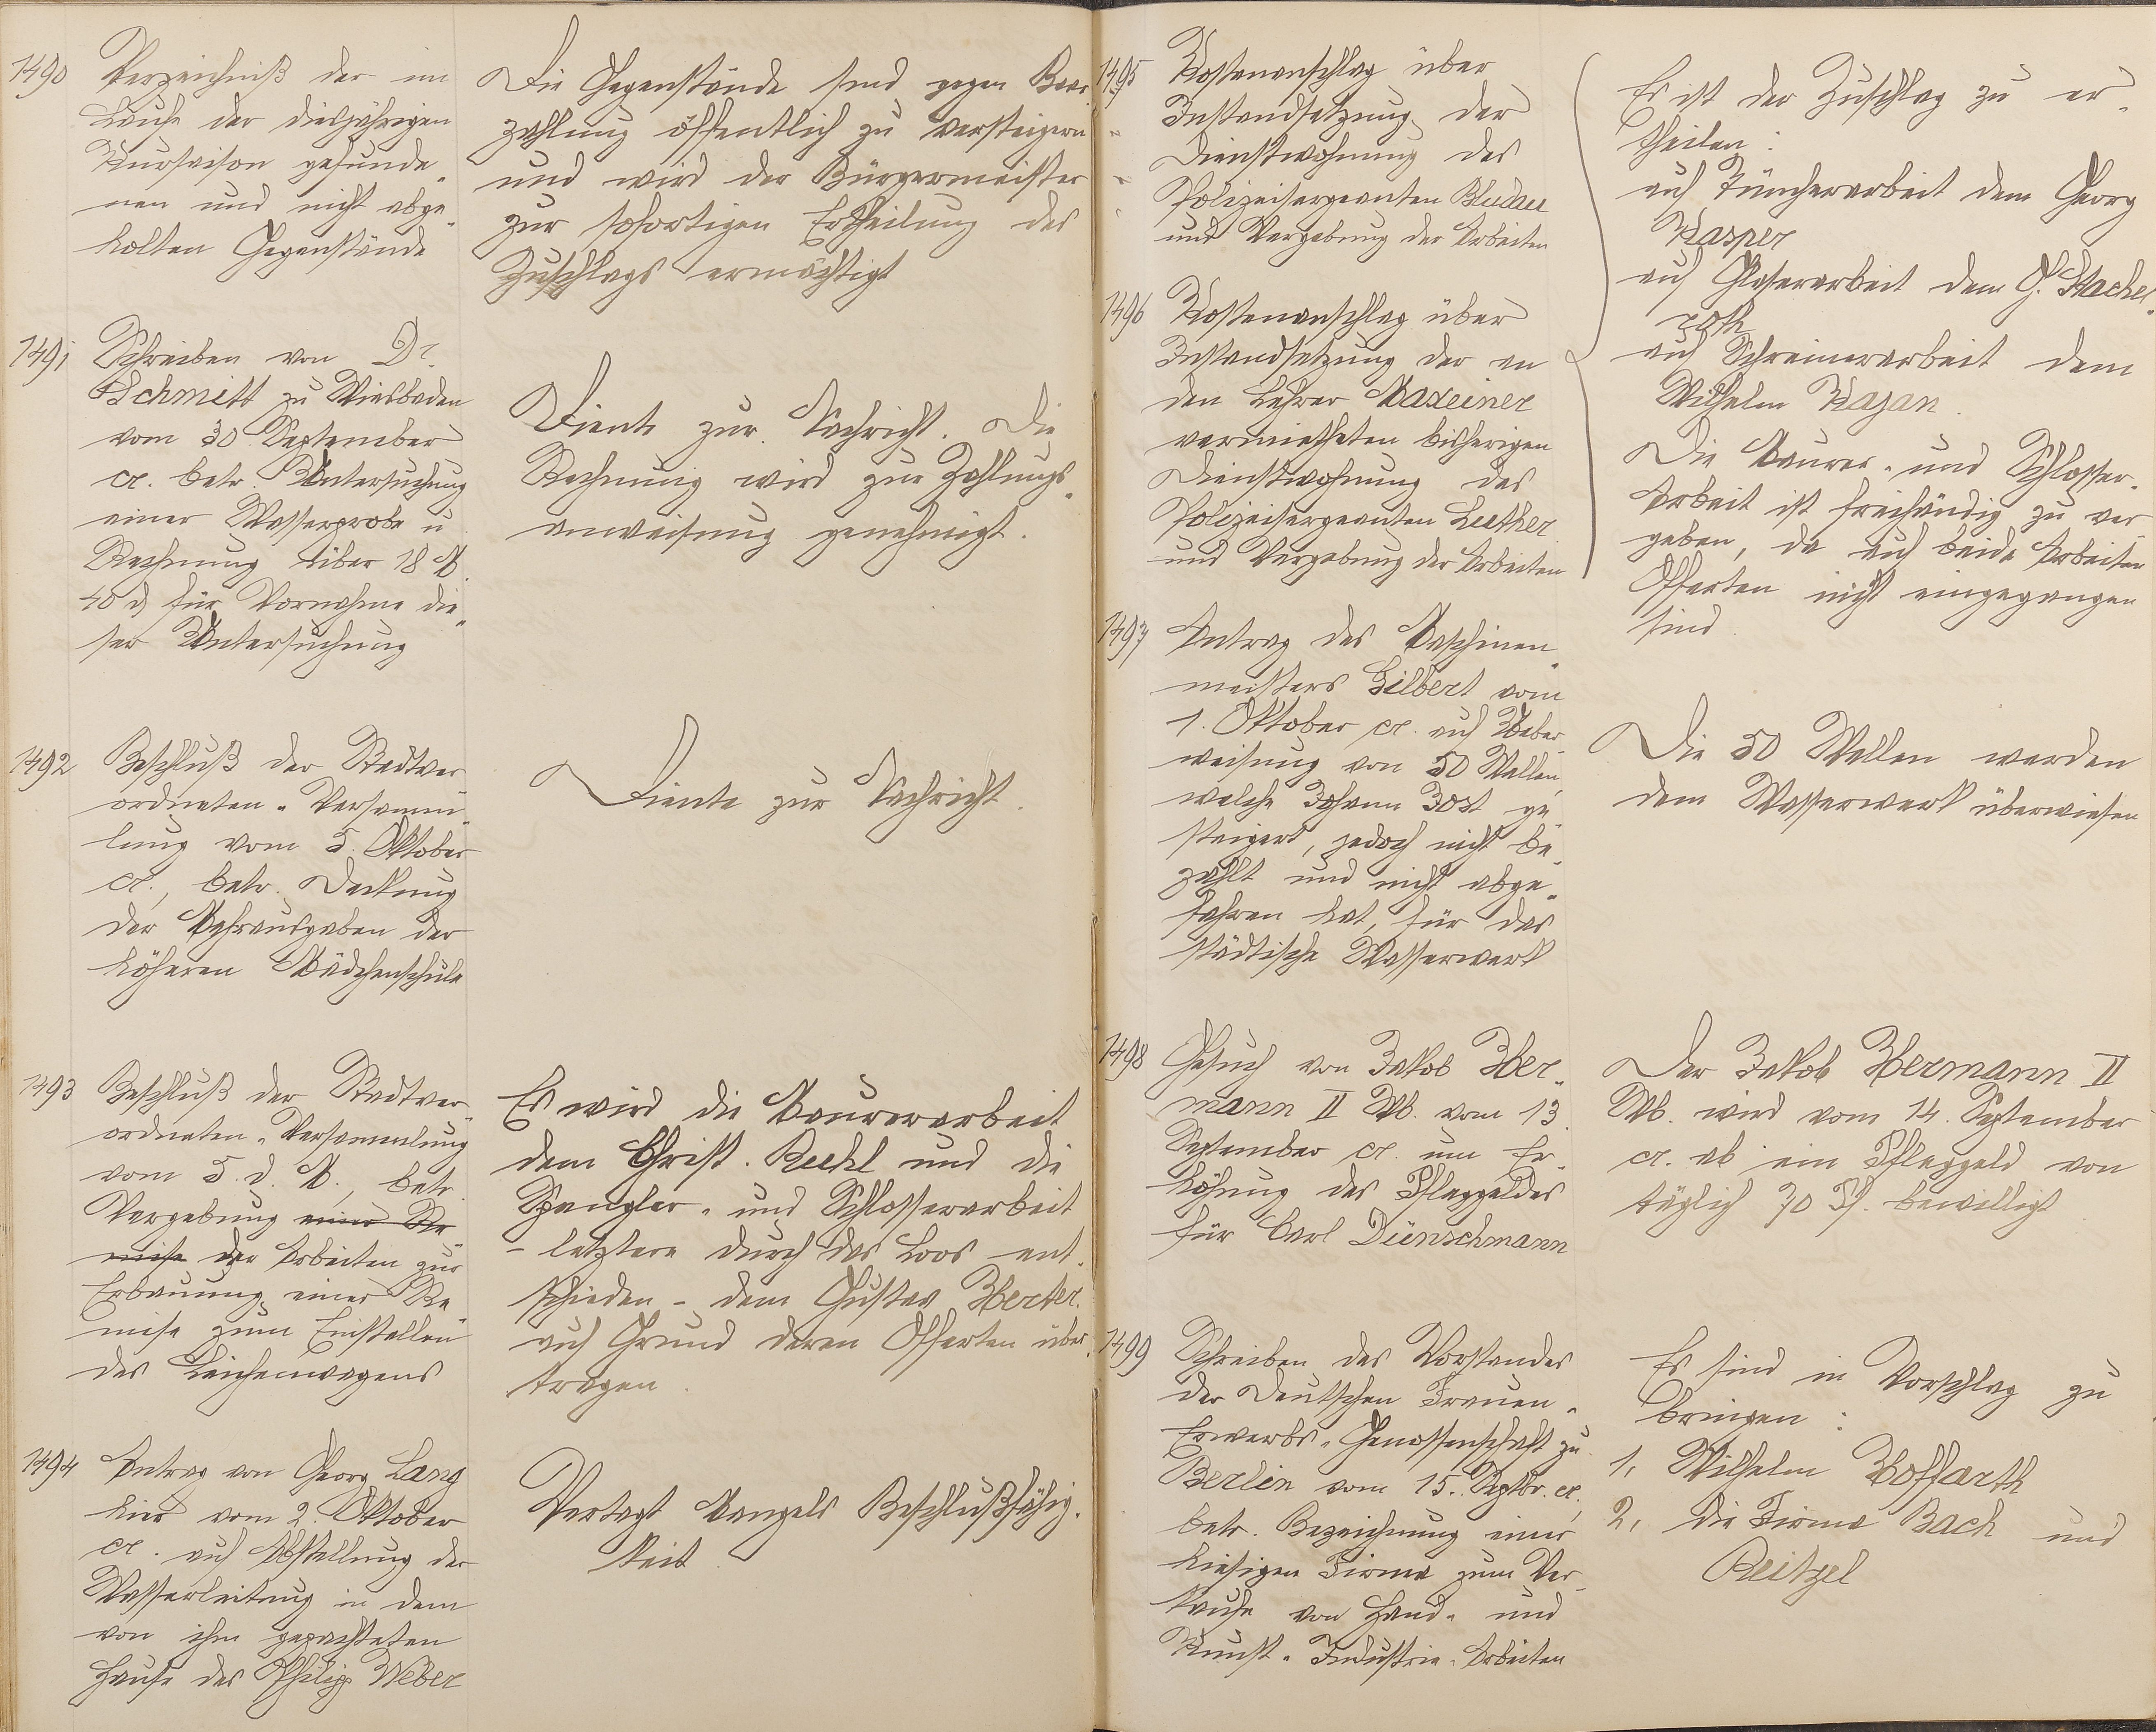 1490 Verzeichniß der im
Laufe der diesjährigen
Kursaison gefunde„
nen und nicht abge„
holten Gegenstände
Die Gegenstände sind gegen Baar„
zahlung öffentlich zu versteigern
und wird der Bürgermeister
zur sofortigen Ertheilung des
Zuschlags ermächtigt
1491 Schreiben von Dr.
Schmitt zu Wiesbaden
vom 30 September
cr. betr. Untersuchung
einer Wasserprobe u
Rechnung über 18 M
40 d für Vornahme die„
ser Untersuchung
Diente zur Nachricht. Die
Rechnung wird zur Zahlungs„
anweisung genehmigt.
1492 Beschluß der Stadtver
ordneten„Versamm„
lung vom 5. Oktober
cr., betr. Deckung
der Mehrausgaben der
höheren Mädchenschule
Diente zur Nachricht.
1493 Beschluß der Stadtver„
ordneten„Versammlung
vom 5. d. M., betr.
Vergebung einer Re„
mise der Arbeiten zur
Erbauung einer Re„
mise zum Einstellen
des Leichenwagens
Es wird die Maurerarbeit
dem Christ. Buhl und die
Spengler„ und Schlosserarbeit
– letztere durch das Loos ent„
schieden – dem Gustav Herter
auf Grund deren Offerten über„
tragen.
1494 Antrag von Georg Lang
hier vom 2. Oktober
cr. auf Abstellung der
Wasserleitung in dem
von ihm gepachteten
Hause des Philipp Weber
Vertagt Mangels Beschlußfähig„
keit
1495 Kostenanschlag über
Instandsetzung der
Dienstwohnung des
Polizeisergeanten Bludau
und Vergebung der Arbeiten
1496 Kostenanschlag über
Instandsetzung der an
den Lehrer Maxeiner
vermietheten bisherigen
Dienstwohnung des
Polizeisergeanten Luther
und Vergebung der Arbeiten
Es ist der Zuschlag zu er„
theilen:
auf Tüncherarbeit dem Georg
Kasper
auf Glaserarbeit dem G. Stachel„
roth
auf Schreinerarbeit dem
Wilhelm Kazan.
Die Maurer„ und Schlosser„
Arbeit ist freihändig zu ver„
geben, da auf beide Arbeiten
Offerten nicht eingegangen
sind.
1497 Antrag des Maschinen„
meisters Gilbert vom
1. Oktober cr. auf Ueber„
weisung von 50 Wellen,
welche Johann Jost ge„
steigert, jedoch nicht be„
zahlt und nicht abge„
fahren hat, für das
städtische Wasserwerk
Die 50 Wellen werden
dem Wasserwerk überwiesen
1498 Gesuch von Jakob Her„
mann II Wb. vom 13.
September cr. um Er„
höhung des Pfleggeldes
für Carl Dünschmann
Der Jakob Hermann II
Wb. wird vom 14. September
cr. ab ein Pfleggeld von
täglich 70 Pf. bewilligt
1499 Schreiben des Vorstandes
der Deutschen Frauen„
Erwerbs„Genossenschaft zu
Berlin vom 15. Septbr. cr.
betr. Bezeichnung einer
hiesigen Firma zum Ver„
kaufe von Hand„ und
Kunst„Industrie„Arbeiten
Es sind in Vorschlag zu
bringen:
1, Wilhelm Hoffarth
2, die Firma Bach und
Reitzel